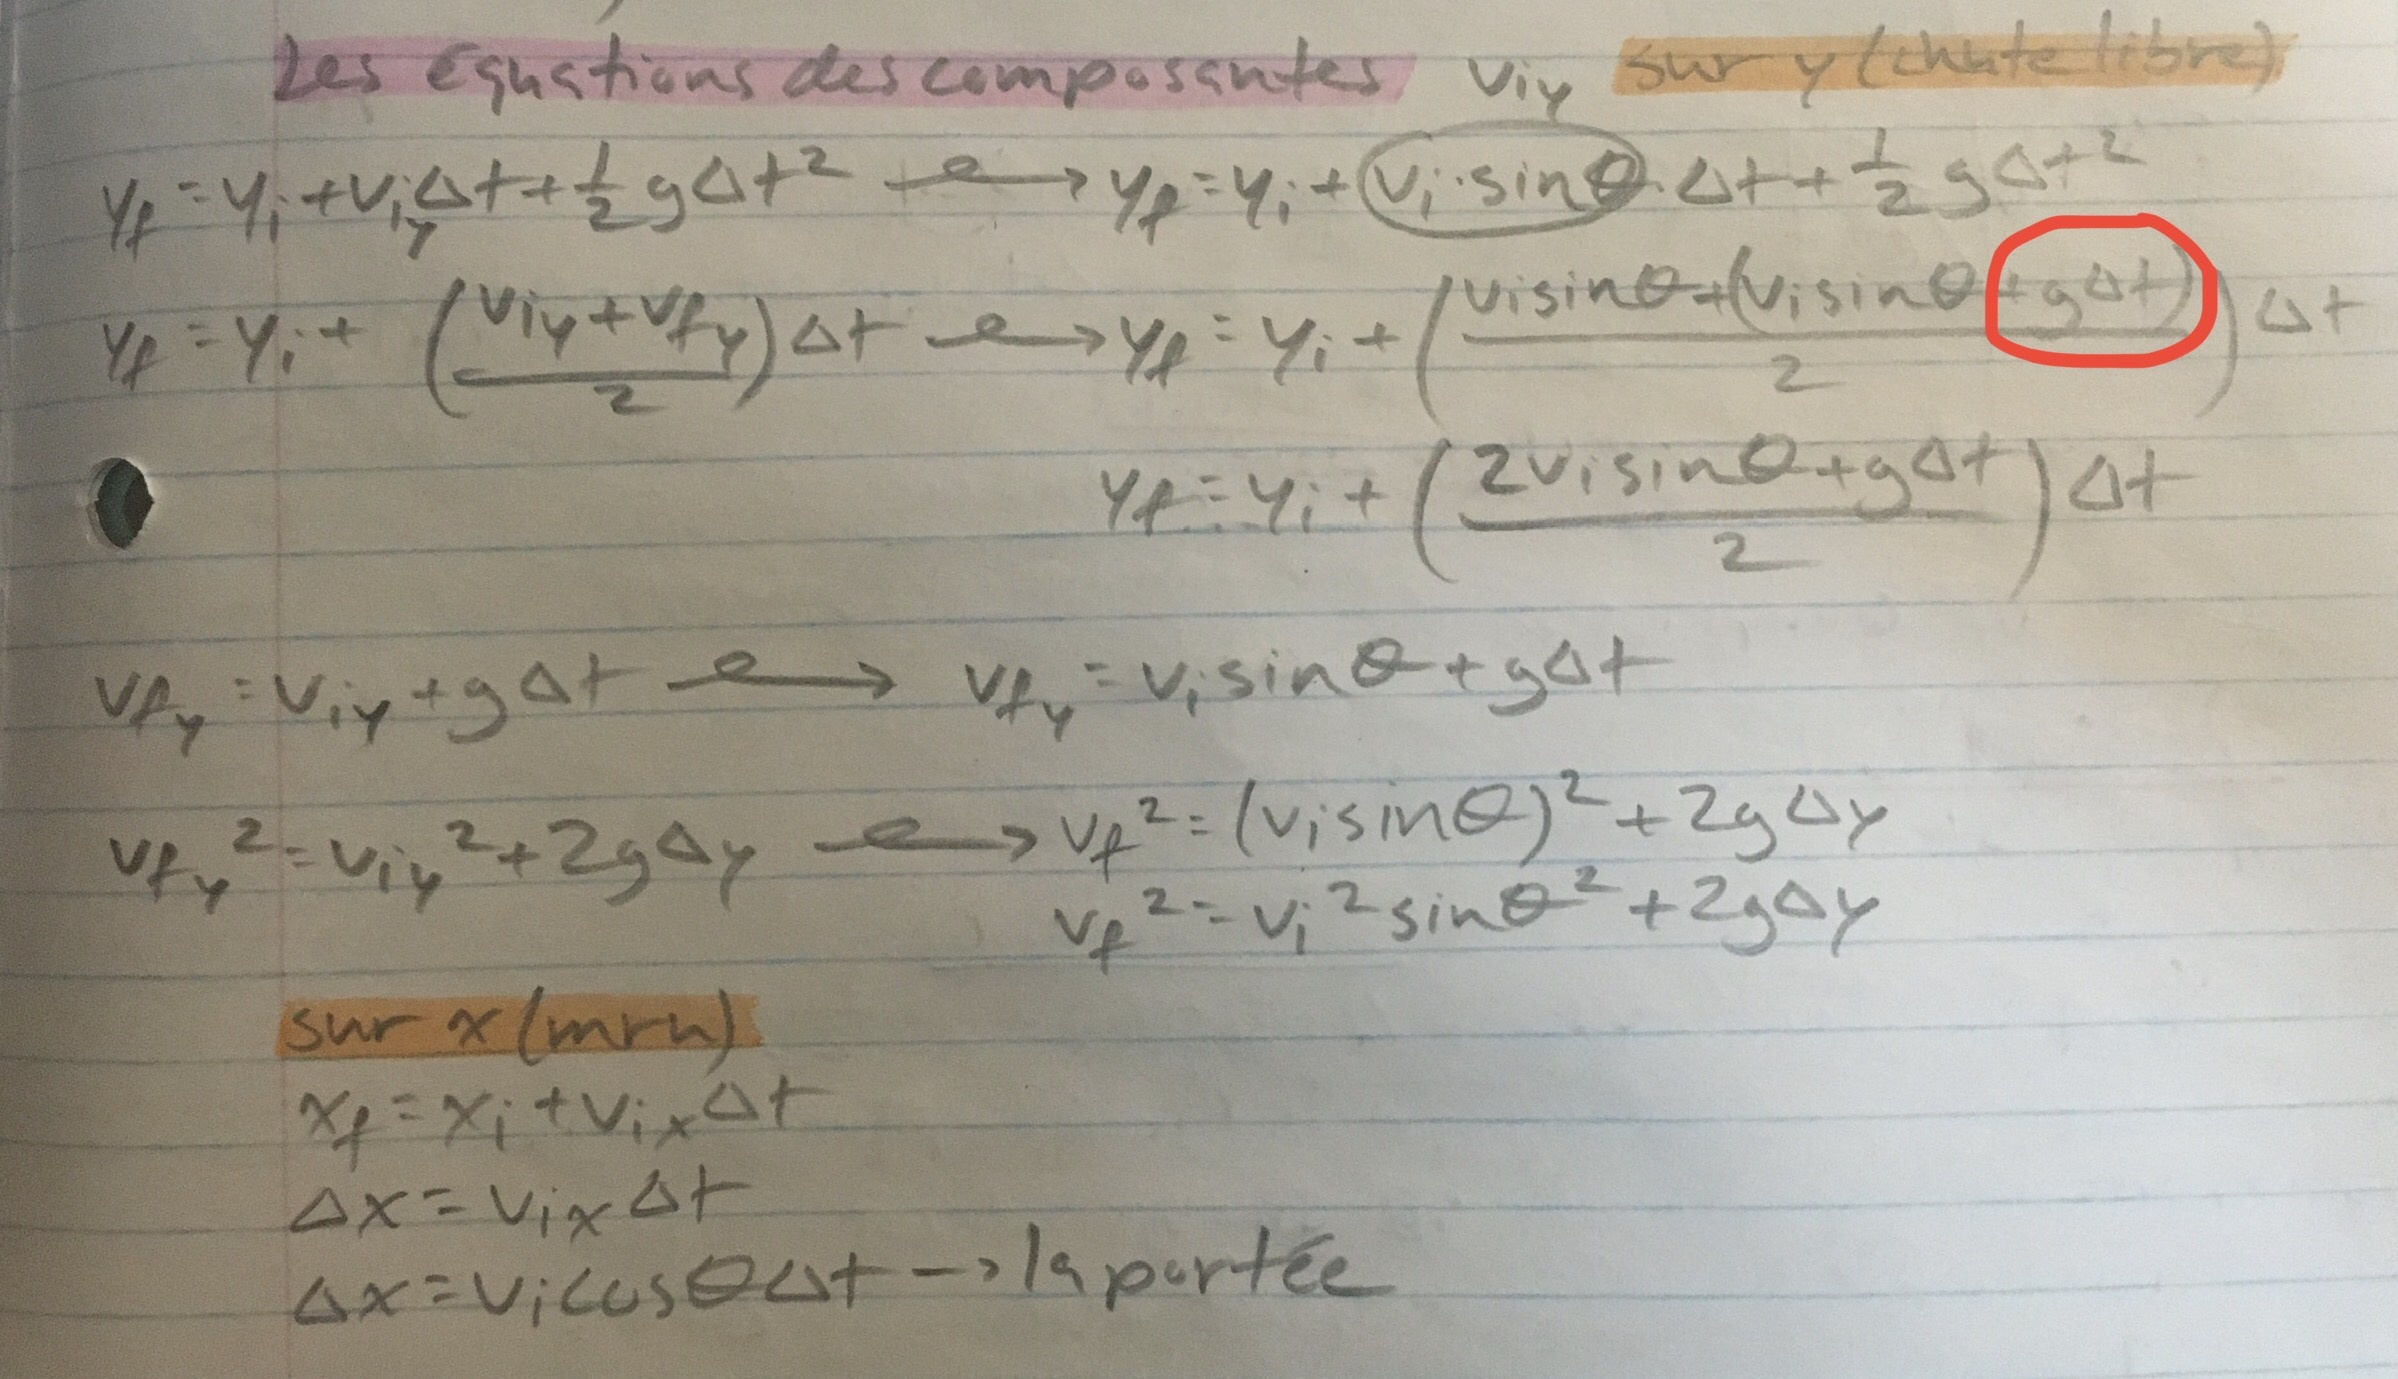 Les équations des composantes viy sur y (chute libre)
yf = yi + viyΔt + 1/2 gΔt² → yf = yi + vi·sinθ·Δt + 1/2 gΔt²
yf = yi + ((viy + vfy)/2)Δt → yf = yi + ((visinθ + (visinθ + gΔt))/2)Δt
yf = yi + ((2visinθ + gΔt)/2)Δt
vfy = viy + gΔt → vfy = visinθ + gΔt
vfy² = viy² + 2gΔy → vf² = (visinθ)² + 2gΔy
vf² = vi²sinθ² + 2gΔy
sur x (mru)
xf = xi + vixΔt
Δx = vixΔt
Δx = vicosθΔt → la portée